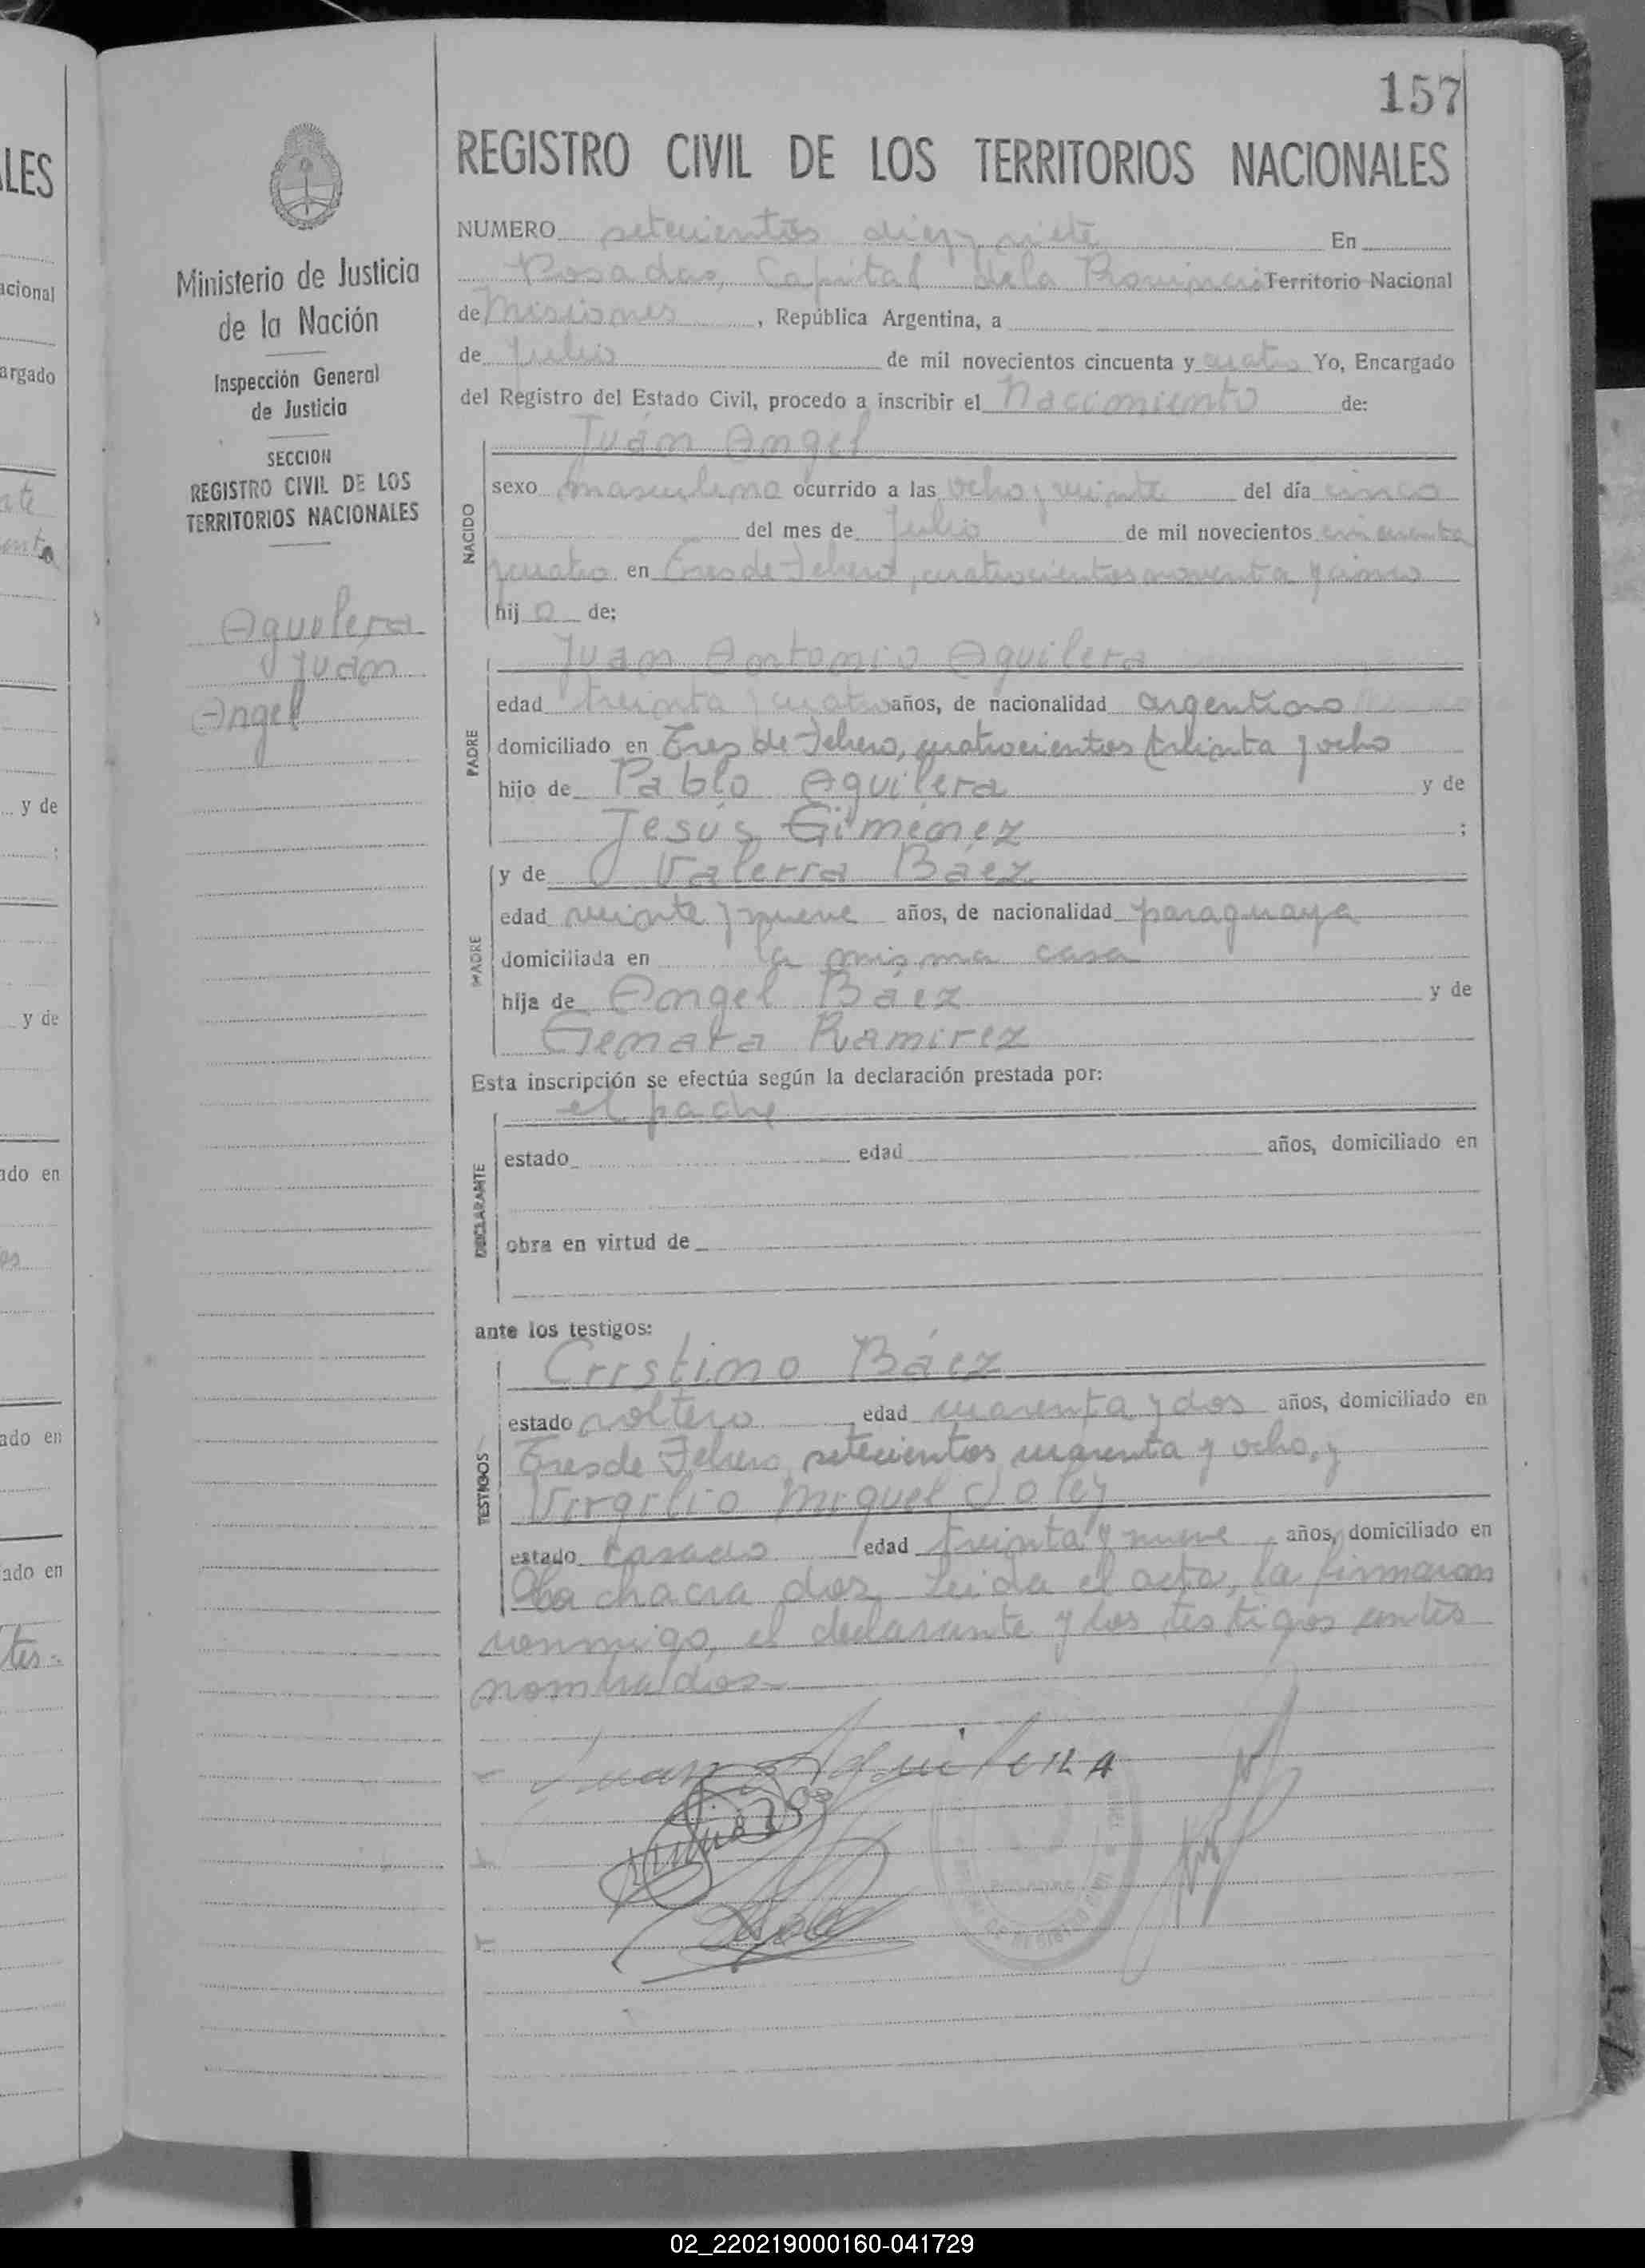 157
REGISTRO CIVIL DE LOS TERRITORIOS NACIONALES
NUMERO setecientos diez y siete En
Posadas, Capital de la Provincia Territorio Nacional
de Misiones, República Argentina, a
de Julio de mil novecientos cincuenta y cuatro Yo, Encargado
del Registro del Estado Civil, procedo a inscribir el Nacimiento de:
Ministerio de Justicia
de la Nación
Inspección General
de Justicia
SECCION
REGISTRO CIVIL DE LOS
TERRITORIOS NACIONALES
Aguilera
Juan
Angel
NACIDO
Juan Angel
sexo masculino ocurrido a las ocho y veinte del día cinco
del mes de Julio de mil novecientos cincuenta
y cuatro en Tres de Febrero, cuatrocientos noventa y cinco
hij o de:
PADRE
Juan Antonio Aguilera
edad treinta y cuatro años, de nacionalidad argentino
domiciliado en Tres de Febrero, cuatrocientos treinta y ocho
hijo de Pablo Aguilera y de
Jesús Gimenez ;
MADRE
y de Valeria Báez
edad veinte y nueve años, de nacionalidad paraguaya
domiciliada en la misma casa
hija de Angel Báez y de
Genara Ramirez
Esta inscripción se efectúa según la declaración prestada por:
DECLARANTE
el padre
estado edad años, domiciliado en
obra en virtud de
ante los testigos:
TESTIGOS
Cristino Báez
estado soltero edad cuarenta y dos años, domiciliado en
Tres de Febrero setecientos cuarenta y ocho, y
Virgilio Miguel
estado casado edad treinta y nueve, años, domiciliado en
chacra dos. Leida el acta, la firmaron
conmigo, el declarante y los testigos antes
nombrados.-
Juan Aguilera
LES
acional
argado
y de
y de
ado en
ado en
ado en
02_220219000160-041729